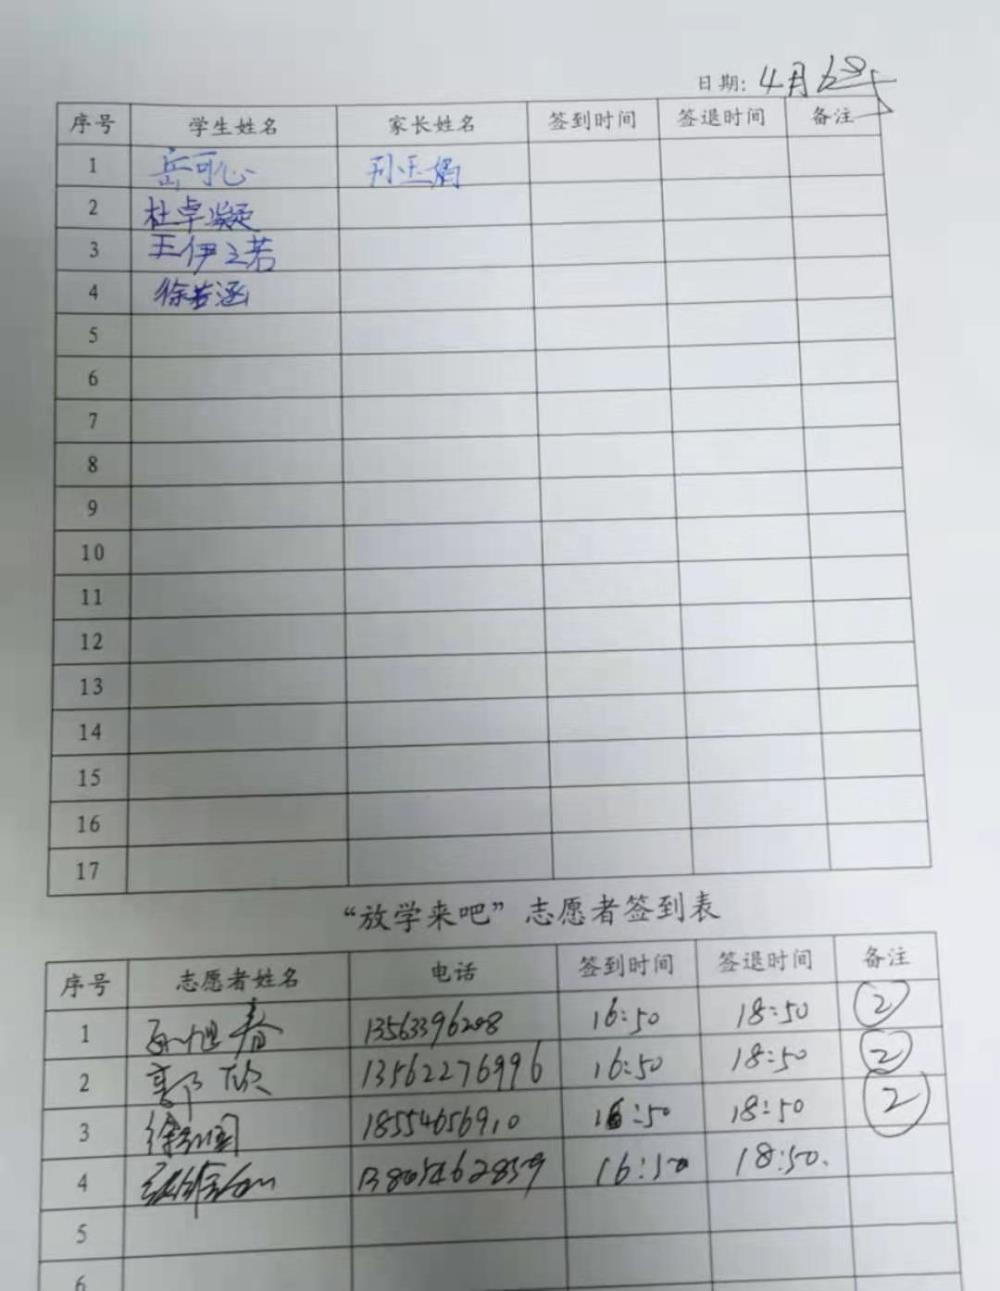 日期: 4月6日
序号 学生姓名 家长姓名 签到时间 签退时间 备注
1 岳可心 孙玉娟
2 杜卓凝
3 王伊之若
4 徐若涵
5
6
7
8
9
10
11
12
13
14
15
16
17
“放学来吧”志愿者签到表
序号 志愿者姓名 电话 签到时间 签退时间 备注
1 孙旭春 13563396208 16:50 18:50 2
2 郭欣 13562276996 16:50 18:50 2
3 18554656910 16:50 18:50 2
4 13805462859 16:50 18:50.
5
6